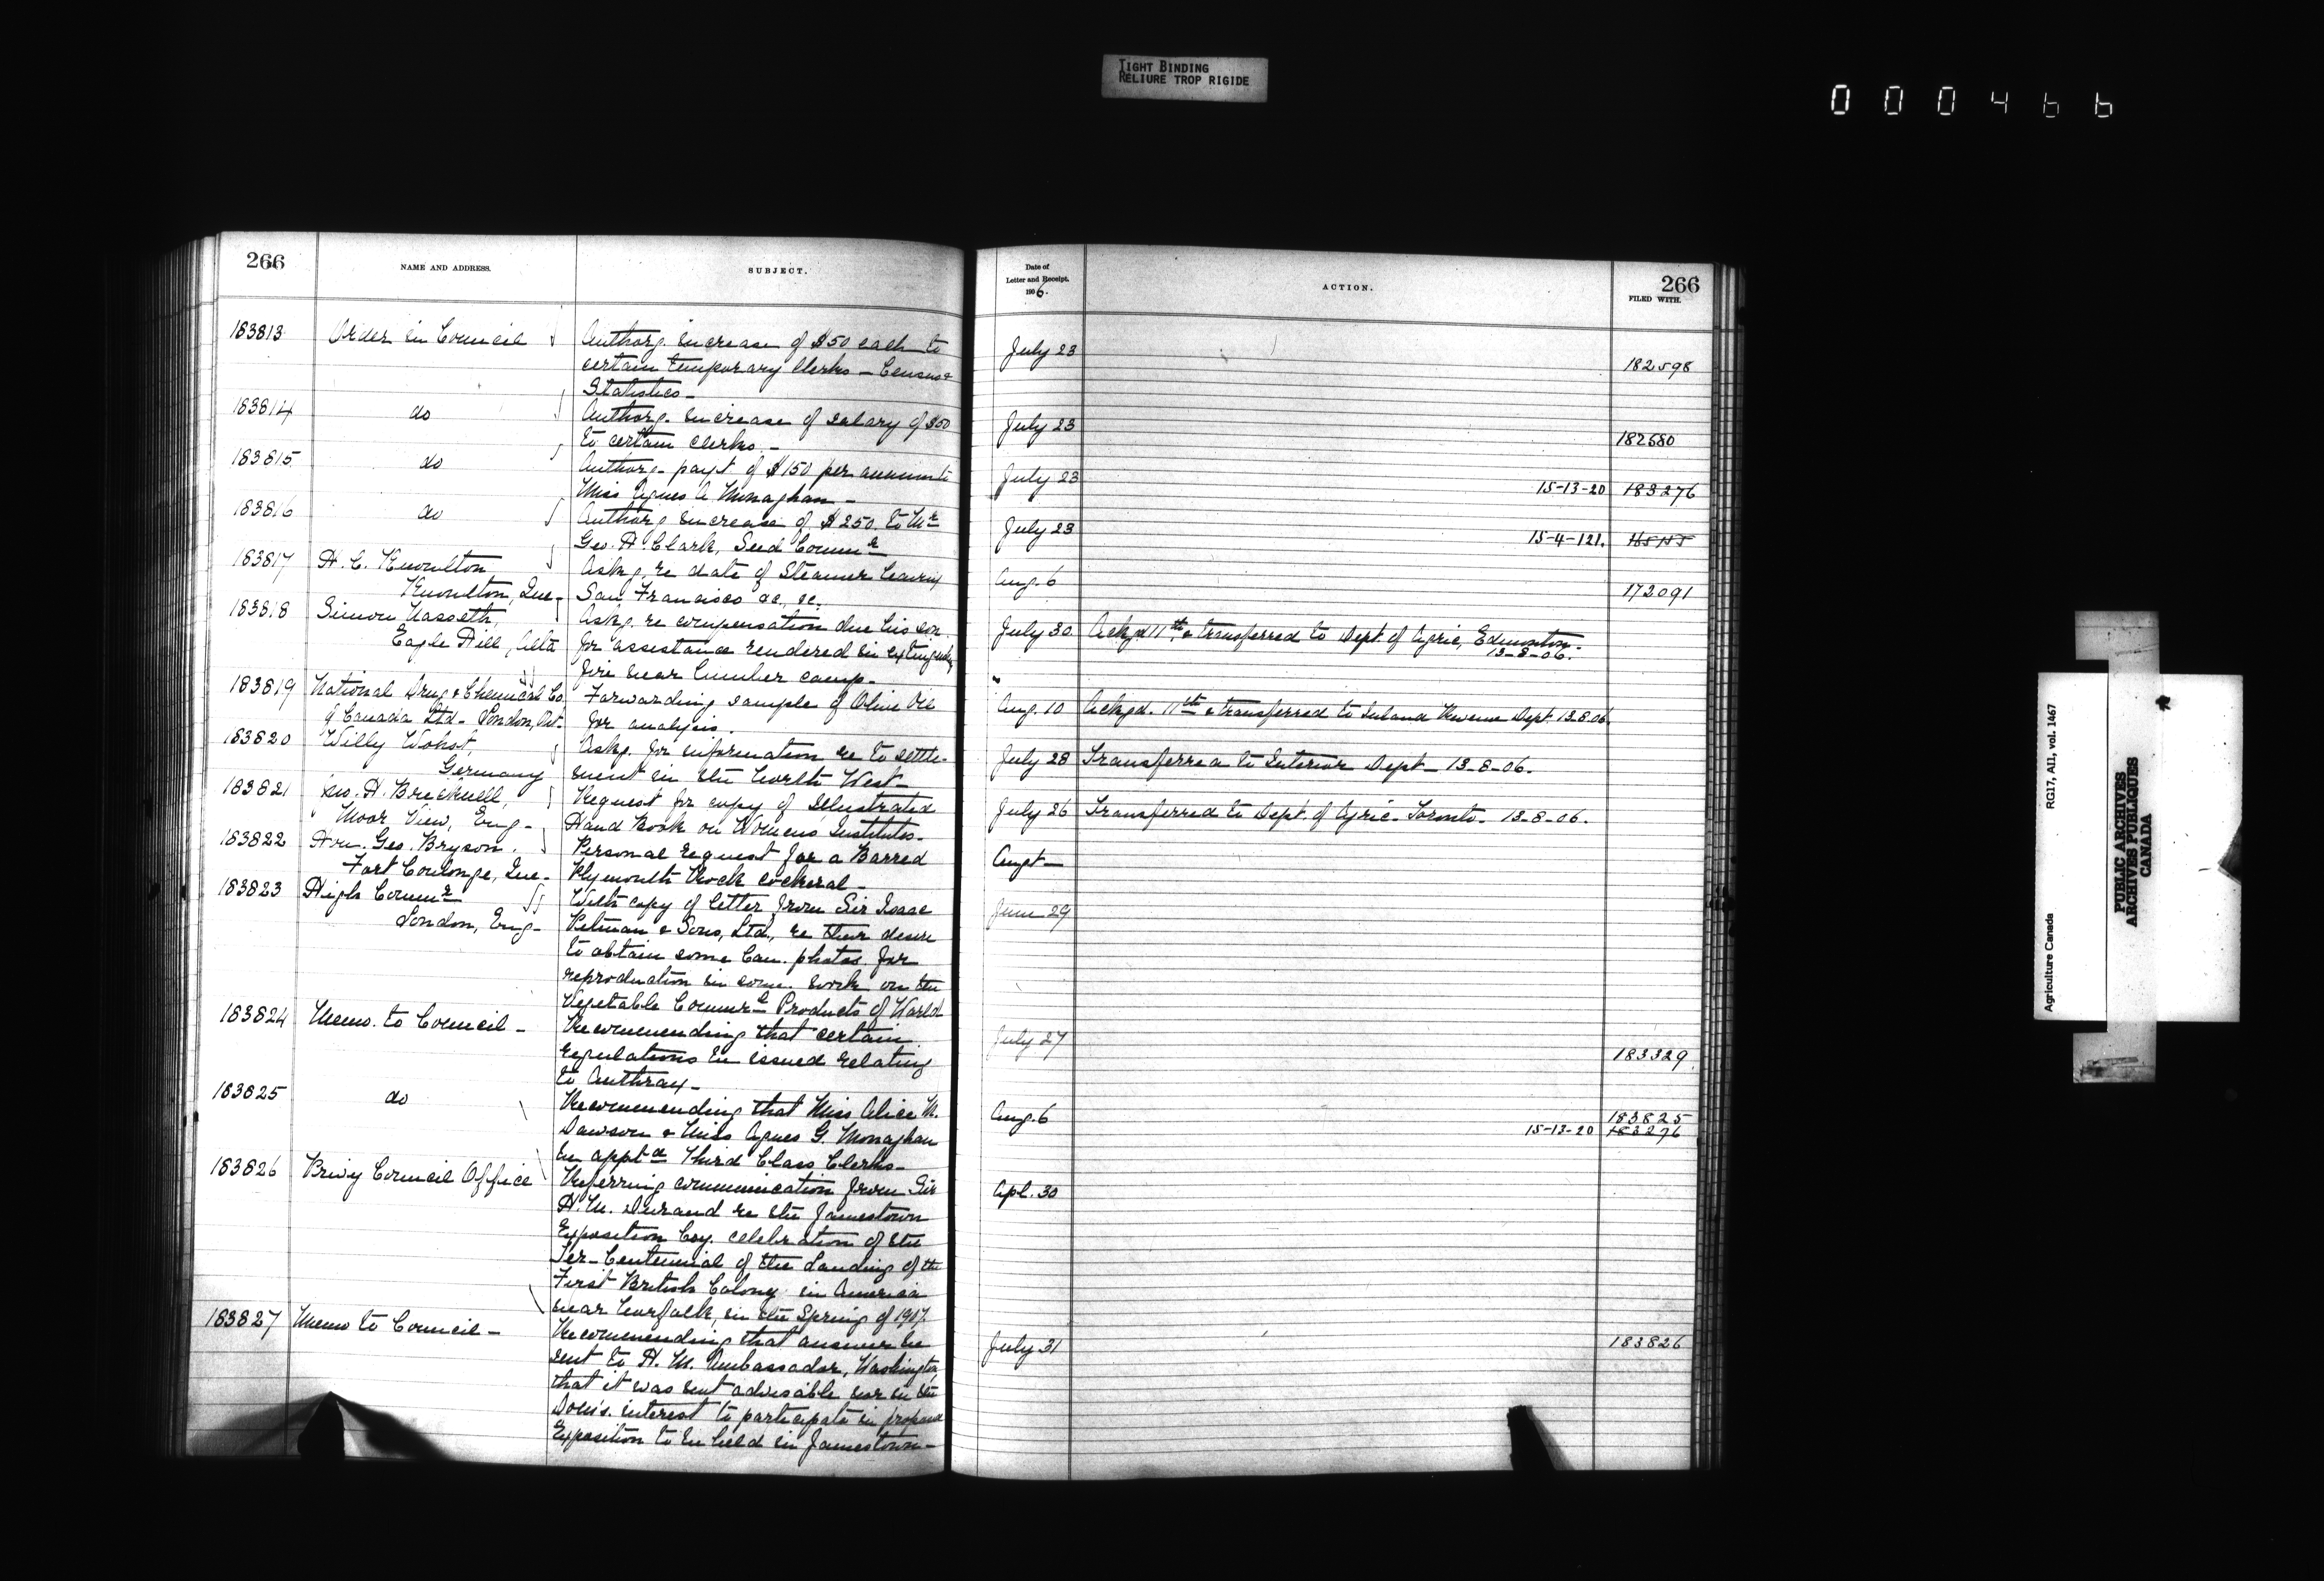 TIGHT BINDING
RELIURE TROP RIGIDE
000466
266
NAME AND ADDRESS.
SUBJECT.
183813 Order in Council Authorg. increase of $50 each to
certain temporary Clerks - Census &
Statistics -
183814 do Authorg. increase of salary of $50
to certain clerks. -
183815 do Authorg. payt. of $150 per annum to
Miss Agnes G. Monaghan -
183816 do Authorg. increase of $250. to Mr
Geo. H. Clark, Seed Commr
183817 H. C. Knowlton Askg. re date of Steamer leaving
Knowlton, Que- San Francisco &c, &c.
183818 Simon Askg. re compensation due his son
Eagle Hill, Alta for assistance rendered in
fire near lumber camp-
183819 National Drug & Chemical Co. Forwarding sample of Olive Oil
of Canada Ltd- London, Ont. for analysis.
183820 Willy Wohst, Askg. for information re to settle-
Germany ment in the North West-
183821 Jno. H. Brecknell, Request for copy of Illustrated
Moor View, Eng- Hand Book on Womens Institutes-
183822 Hon. Geo. Bryson. Personal request for a Barred
Fort Coulonge, Que- Plymouth Rock cockeral-
183823 High Commr With copy of letter from Sir Isaac
London, Eng- Pitman & Sons, Ltd, re their desire
to obtain some Can. photos. for
reproduction in some work on the
Vegetable Products of World
183824 Memo. to Council- Recommending that certain
regulations be issued relating
to Anthrax-
183825 do Recommending that Miss Alice M.
Dawson & Miss Agnes G. Monaghan
be apptd Third Class Clerks-
183826 Privy Council Office Referring communication from Sir
H. M. Durand re the Jamestown
Exposition Coy. celebration of the
Ter-Centennial of the Landing of the
First British Colony in America
near Norfolk, in the Spring of 1907.
183827 Memo to Council- Recommending that answer be
sent to H. M. Ambassador, Washington,
that it was not advisable nor in the
Dom's. interest to participate in proposed
Exposition to be held in Jamestown-
Date of
Letter and Receipt.
1906.
ACTION.
266
FILED WITH.
July 23 182598
July 23 182680
July 23 15-13-20 183276
July 23 15-4-121.
Aug. 6 172091
July 30 Ackgd 11th & transferred to Dept. of Agric, Edmonton-
13-8-06.
Aug. 10 Ackgd. 11th & transferred to Inland Revenue Dept. 13.8.06.
July 28 Transferred to Interior Dept- 13-8-06.
July 26 Transferred to Dept. of Agric- Toronto- 13-8-06.
June 29
July 27 183329
Aug. 6 183825
15-13-20 183276
Apl. 30
July 31 183826
Agriculture Canada RG17, AII, vol. 1467
PUBLIC ARCHIVES
ARCHIVES PUBLIQUES
CANADA